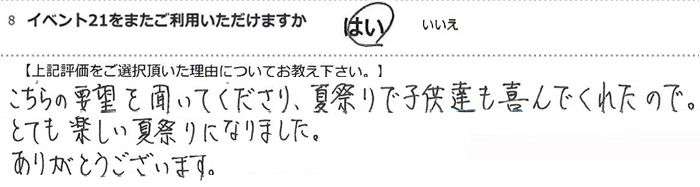 8 イベント21をまたご利用いただけますか はい いいえ
【上記評価をご選択頂いた理由についてお教え下さい。】
こちらの要望を聞いてくださり、夏祭りで子供達も喜んでくれたので。
とても楽しい夏祭りになりました。
ありがとうございます。